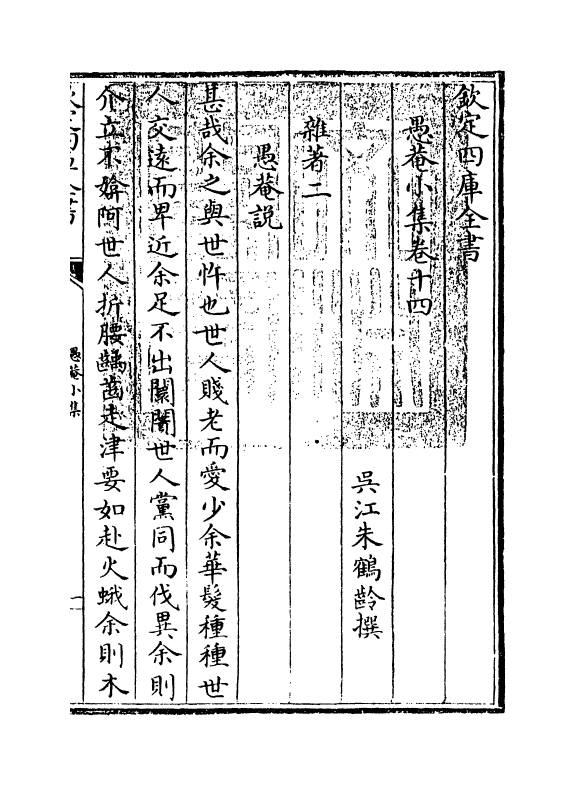 欽定四庫全書
愚菴小集卷十四
吳江朱鶴齡撰
雜著二
愚菴説
甚哉余之與世忤也世人賤老而愛少余華髮種種世
人交遠而卑近余足不出闤闠世人黨同而伐異余則
介立不媕阿世人折腰齲齒走津要如赴火蛾余則木
愚菴小集
一